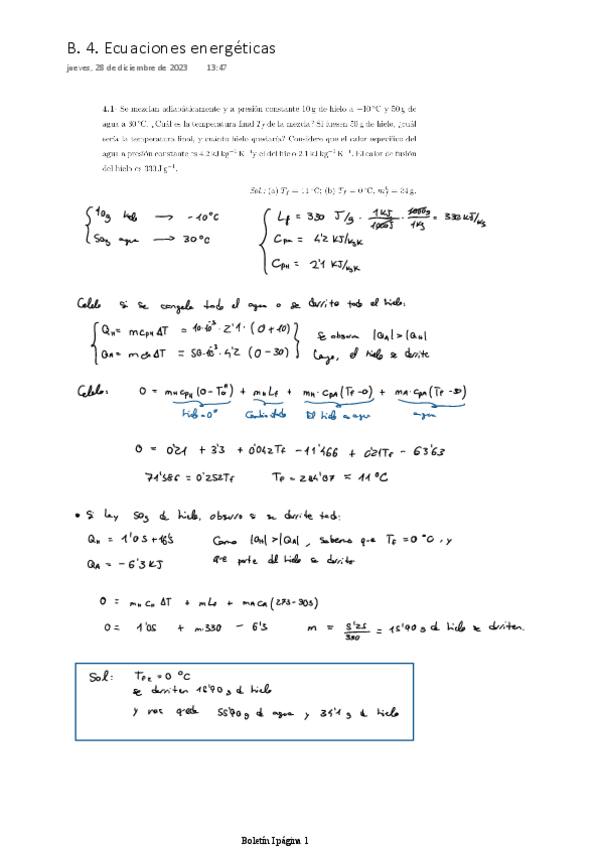 B. 4. Ecuaciones energéticas
jueves, 28 de diciembre de 2023 13:47
4.1- Se mezclan adiabáticamente y a presión constante 10 g de hielo a −10 °C y 50 g de
agua a 30 °C. ¿Cuál es la temperatura final Tf de la mezcla? Si fuesen 50 g de hielo, ¿cuál
sería la temperatura final, y cuánto hielo quedaría? Considere que el calor específico del
agua a presión constante es 4.2 kJ kg⁻¹ K⁻¹ y el del hielo 2.1 kJ kg⁻¹ K⁻¹. El calor de fusión
del hielo es 330 J g⁻¹.
Sol.: (a) Tf = 11 °C; (b) Tf = 0 °C, = 34 g.
10g hielo → -10°C
50g agua → 30°C
Lf = 330 J/g · 1KJ/1000J · 1000g/1Kg = 330 KJ/Kg
Cpa = 4'2 KJ/KgK
CpH = 2'1 KJ/KgK
Calculo si se congela todo el agua o se derrite todo el hielo:
QH = m CpH ΔT = 10·10⁻³ · 2'1 · (0+10)
QA = m CpA ΔT = 50·10⁻³ · 4'2 (0-30)
Se observa |QA| > |QH|
Luego, el hielo se derrite
Calculo: 0 = mH CpH (0-T0) + mH Lf + mH · CpA (Tf-0) + mA · CpA (Tf-30)
hielo→0° Cambio estado El hielo es agua agua
0 = 0'21 + 3'3 + 0'042Tf - 11'466 + 0'21Tf - 63'63
71'586 = 0'252Tf Tf = 284'07 = 11 °C
• Si hay 50g de hielo, observo si se derrite todo:
QH = 1'05 + 16'5 Como |QH| > |QA|, sabemos que Tf = 0 °C, y
QA = -6'3 KJ que parte del hielo se derrite
0 = mH CH ΔT + m Lf + mA CA (273-303)
0 = 1'05 + m·330 - 6'3 m = 5'25/330 = 15'90 g d hielo se derriten.
Sol: = 0 °C
se derriten 15'90 g d hielo
y nos queda g d agua y 34'1 g d hielo
Boletín I página 1